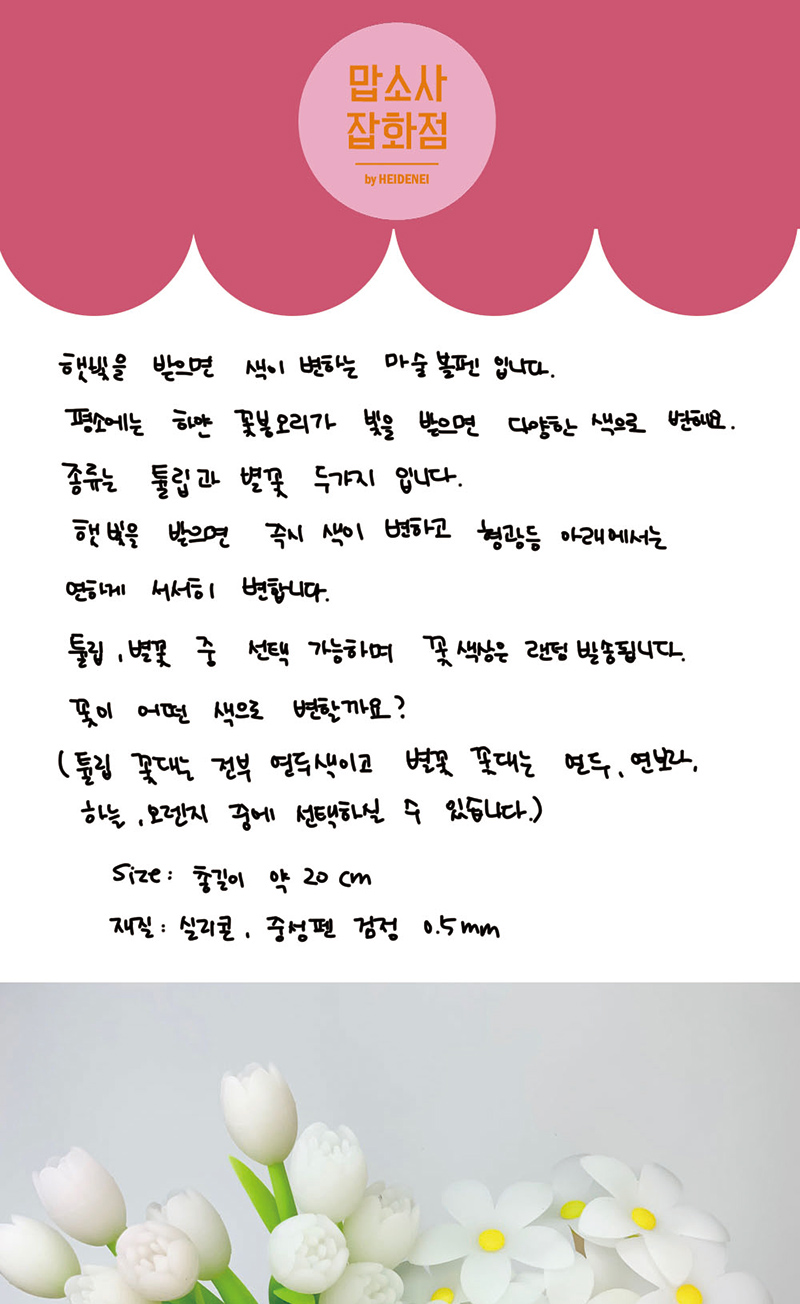 맙소사
잡화점
by HEIDENEI
햇빛을 받으면 색이 변하는 마술볼펜 입니다.
평소에는 하얀 꽃봉오리가 빛을 받으면 다양한 색으로 변해요.
종류는 튤립과 별꽃 두가지 입니다.
햇빛을 받으면 즉시 색이 변하고 형광등 아래에서는
연하게 서서히 변합니다.
튤립, 별꽃 중 선택 가능하며 꽃색상은 랜덤발송됩니다.
꽃이 어떤 색으로 변할까요?
(튤립 꽃대는 전부 연두색이고 별꽃 꽃대는 연두, 연보라,
하늘, 오렌지 중에 선택하실 수 있습니다.)
Size: 총길이 약 20 cm
재질: 실리콘, 중성펜 검정 0.5mm